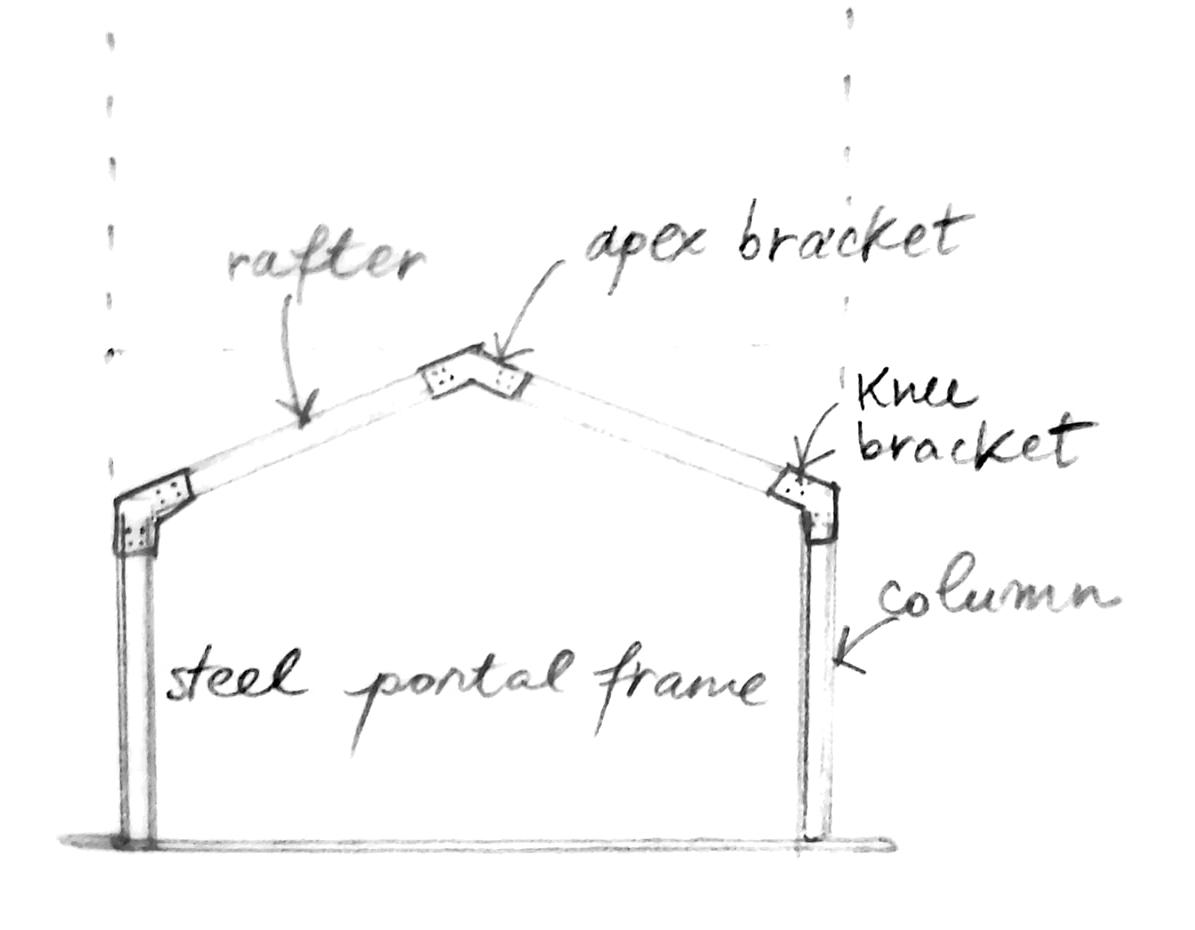 rafter
apex bracket
Knee
bracket
column
steel portal frame